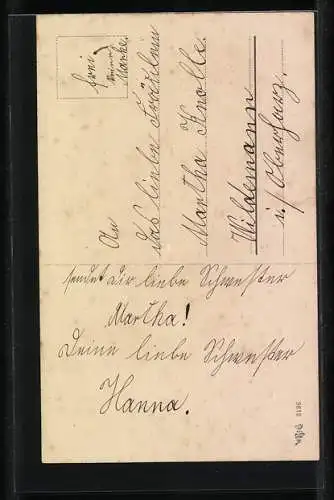 frei
Marke.
An
das liebe Fräulein
Martha Knolle.
Wildemann
i./Oberharz.
sendet Dir liebe Schwester
Martha!
Deine liebe Schwester
Hanna.